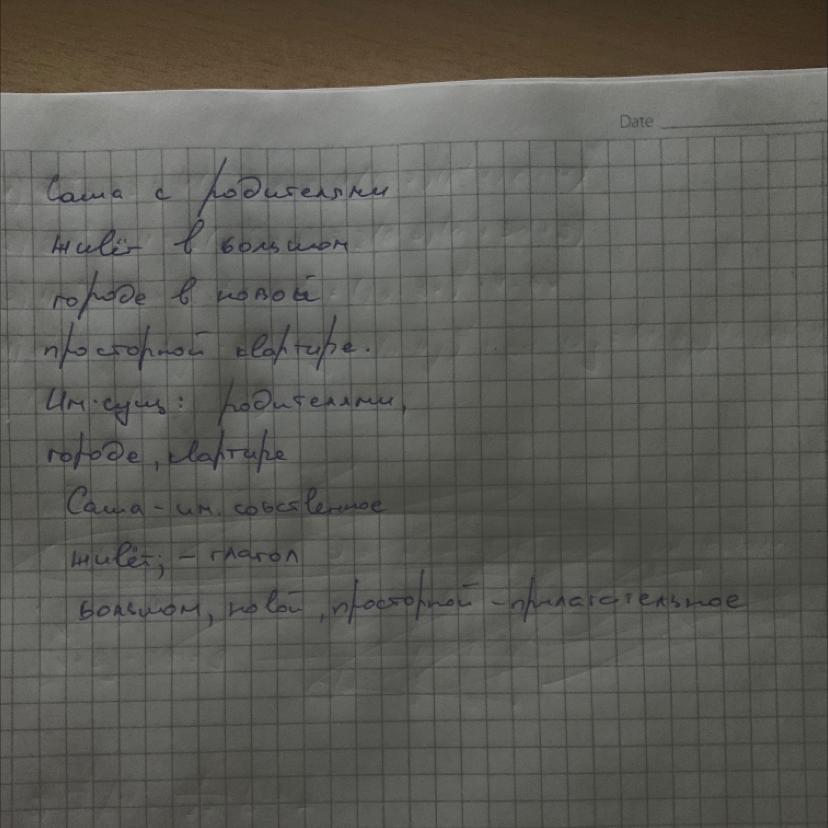 Date
Саша с родителями
живёт в большом
городе в новой
просторной квартире.
Им. сущ: родителями,
городе, квартире
Саша - им. собственное
живёт; - глагол
большом, новой, просторной - прилагательное